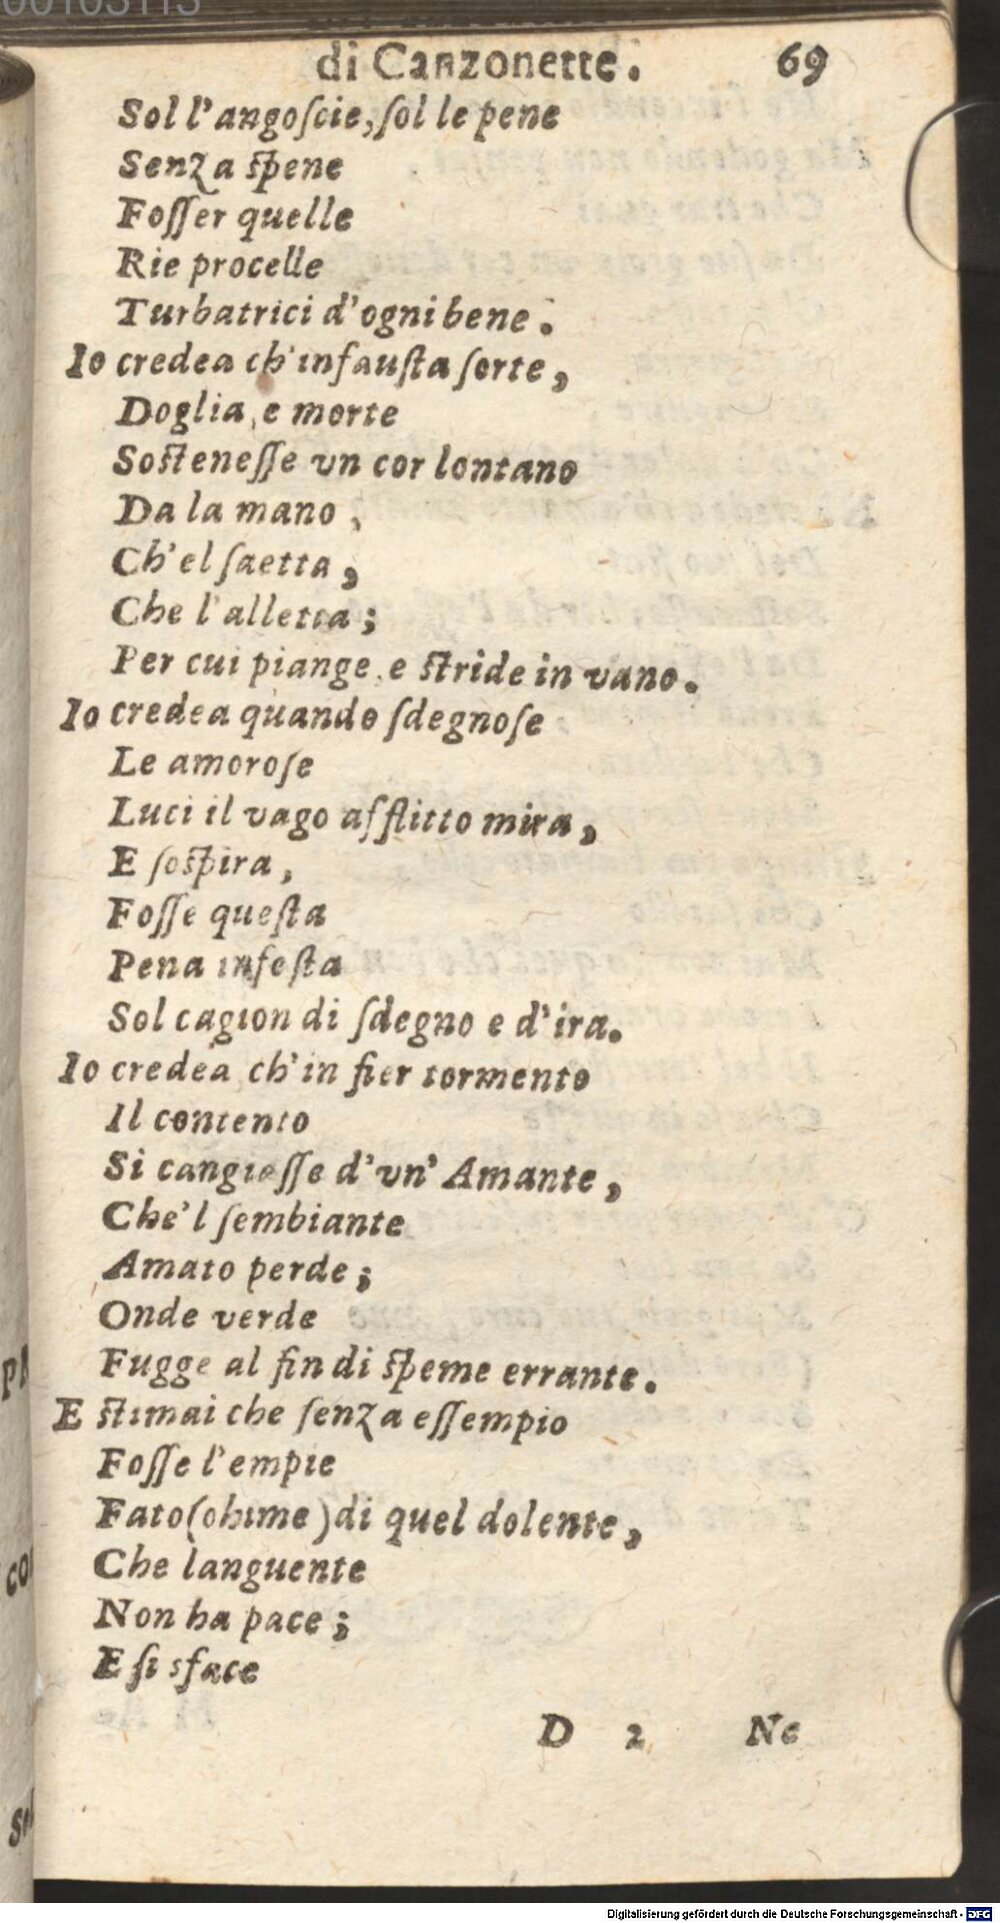 00103113
di Canzonette. 69
Sol l'angoſcie, ſol le pene
Senza ſpene
Foſſer quelle
Rie procelle
Turbatrici d'ogni bene.
Io credea ch'infauſta ſorte,
Doglia, e morte
Soſteneſſe vn cor lontano
Da la mano,
Ch'el ſaetta,
Che l'alletta;
Per cui piange, e ſtride in vano.
Io credea quando ſdegnoſe
Le amoroſe
Luci il vago afflitto mira,
E ſoſpira,
Foſſe queſta
Pena infeſta
Sol cagion di ſdegno e d'ira.
Io credea ch'in fier tormento
Il contento
Si cangiaſſe d'vn' Amante,
Che'l ſembiante
Amato perde;
Onde verde
Fugge al fin di ſpeme errante.
E ſtimai che ſenza eſſempio
Foſſe l'empie
Fato (ohime) di quel dolente,
Che languente
Non ha pace;
E ſi sface
D 2 Ne
Digitalisierung gefördert durch die Deutsche Forschungsgemeinschaft - DFG